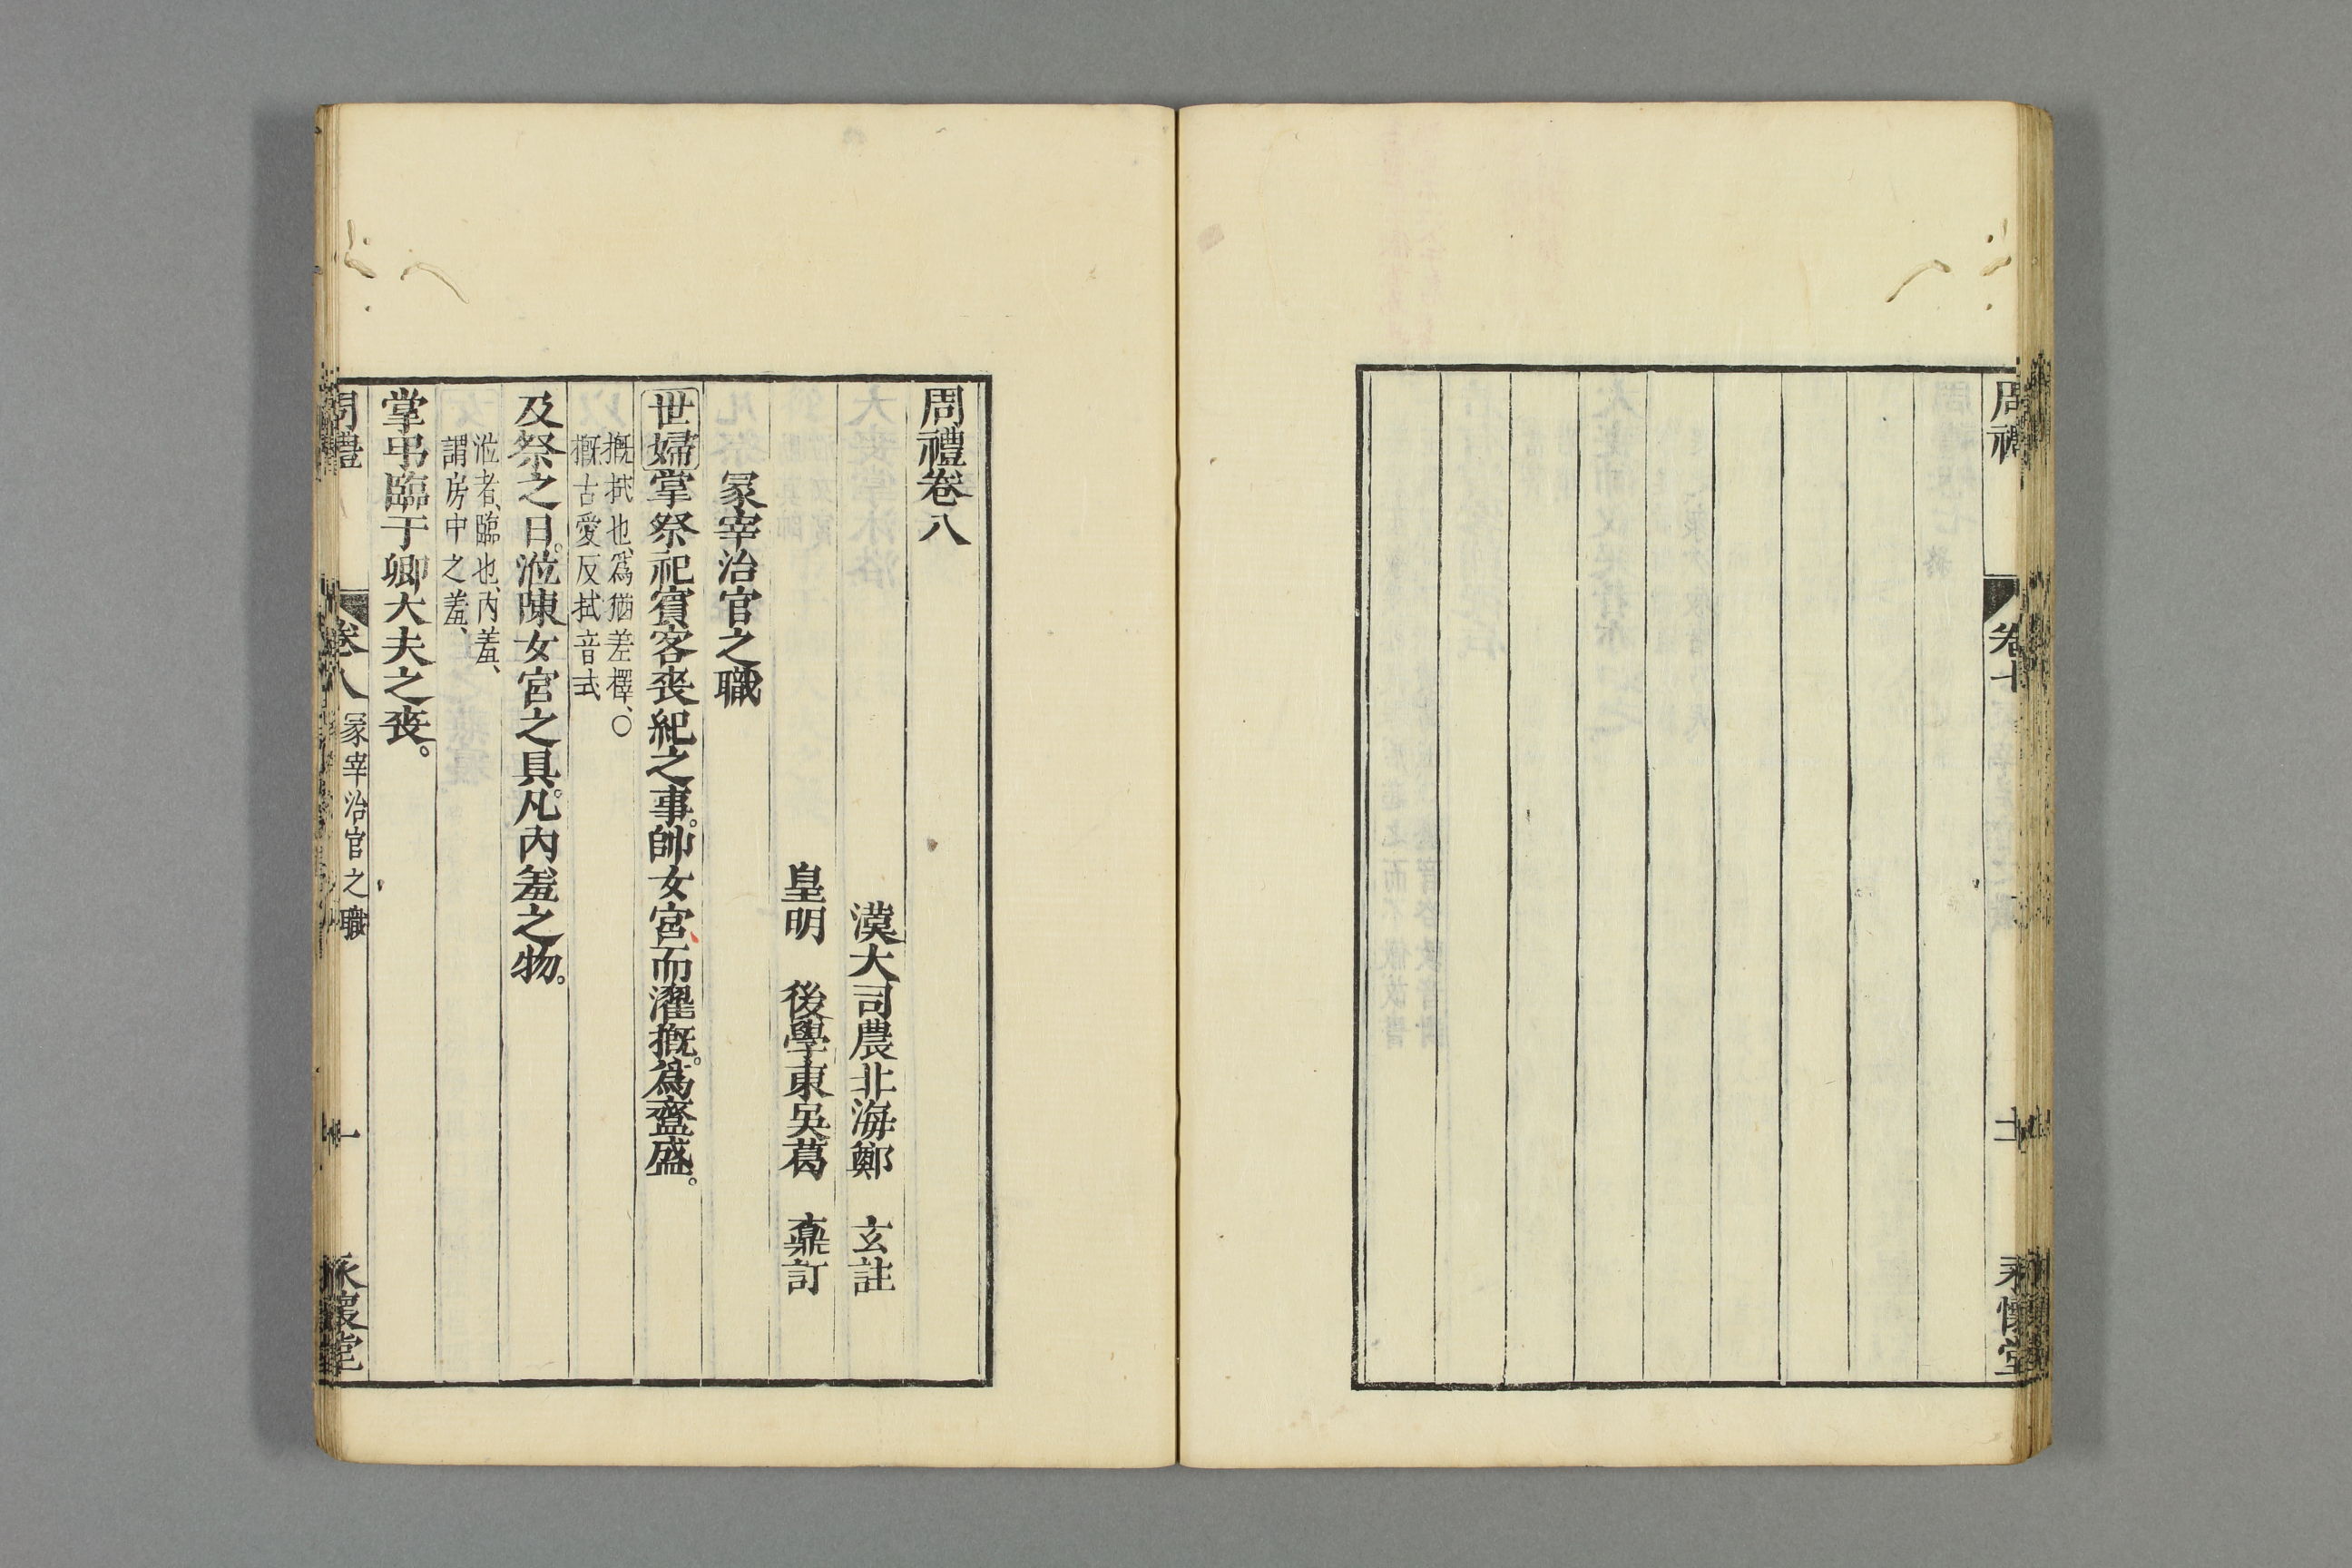 周禮
卷七
十
永懷堂
周禮卷八
漢大司農北海鄭　玄註
皇明　後學東吳葛　鼒訂
冢宰治官之職
世婦掌祭祀賓客喪紀之事。帥女宮、而濯摡。爲齍盛。
摡、拭也、爲猶差擇、〇
摡古愛反拭音式
及祭之日。涖陳女宮之具。凡內羞之物。
涖者、臨也、內羞、
謂房中之羞、
掌弔臨于卿大夫之喪。
周禮
卷八
冢宰治官之職
一
永懷堂